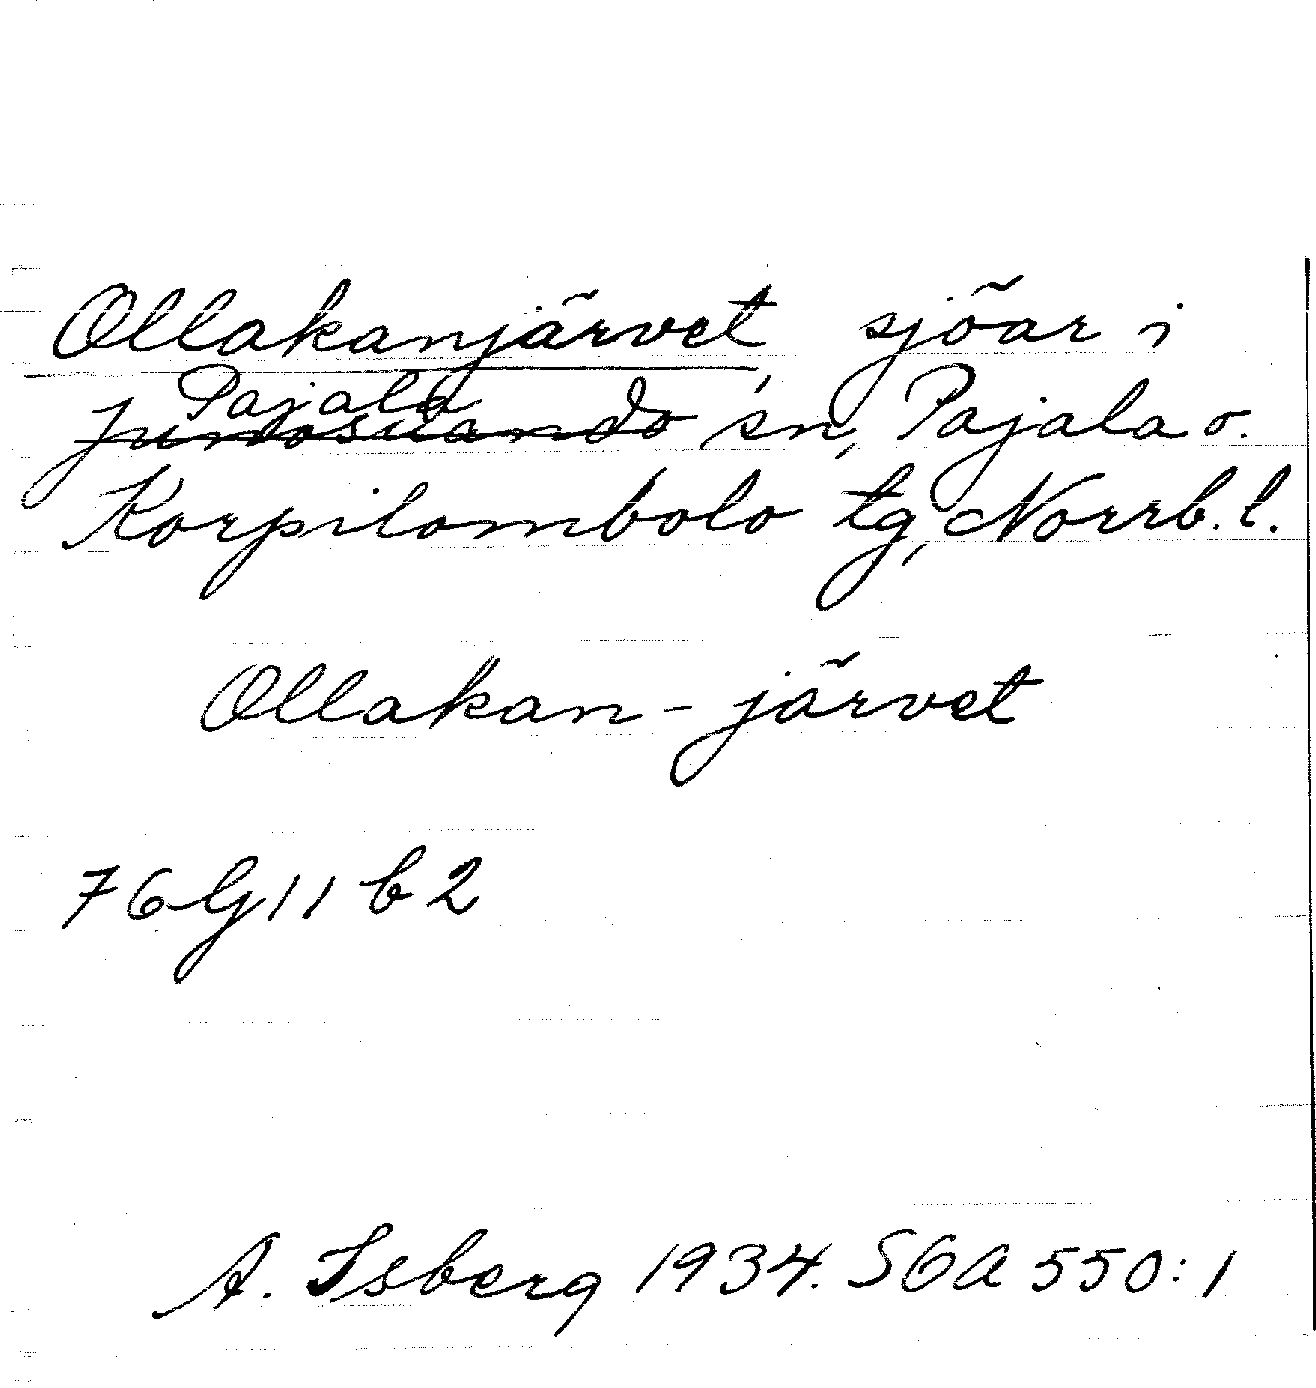 Ollakanjärvet, sjöar i
Pajala
Junosuando sn, Pajala o.
Korpilombolo tg, Norrb. l.
Ollakan-järvet
76G11 b2
A. Isberg 1934. SOA 550:1